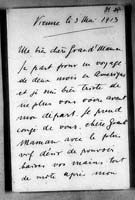 Vienne le 3 Mai 1913
Ma très chère Grand'Maman
Je part pour un voyage
de deux mois en Amerique
et je suis bien triste de
ne plus vous voir avant
mon départ. Je prend
congé de vous, chère Grand
Maman avec le plus
vif désir de pouvoir
baiser vos mains tout
de suite après mon